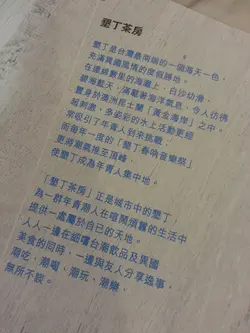 墾丁茶房
墾丁是台灣最南端的一個海天一色，
充滿異國風情的度假勝地。
在連綿數里的海灘上，白沙幼滑，
碧海藍天，滿載著海洋氣息，令人仿佛
置身於澳洲昆士蘭「黃金海岸」之中。
超刺激、多姿彩的水上活動更經
常吸引了年青人到來挑戰，
而每年一度的「墾丁春吶音樂祭」
更將潮氣推至頂峰，
使墾丁成為年青人集中地。
「墾丁茶房」正是城市中的墾丁，
為一群年青潮人在喧鬧煩囂的生活中
提供一處屬於自己的天地。
人人一邊在細嚐台潮飲品及異國
美食的同時，一邊與友人分享逸事，
潮吃、潮喝、潮玩、潮樂，
無所不談。